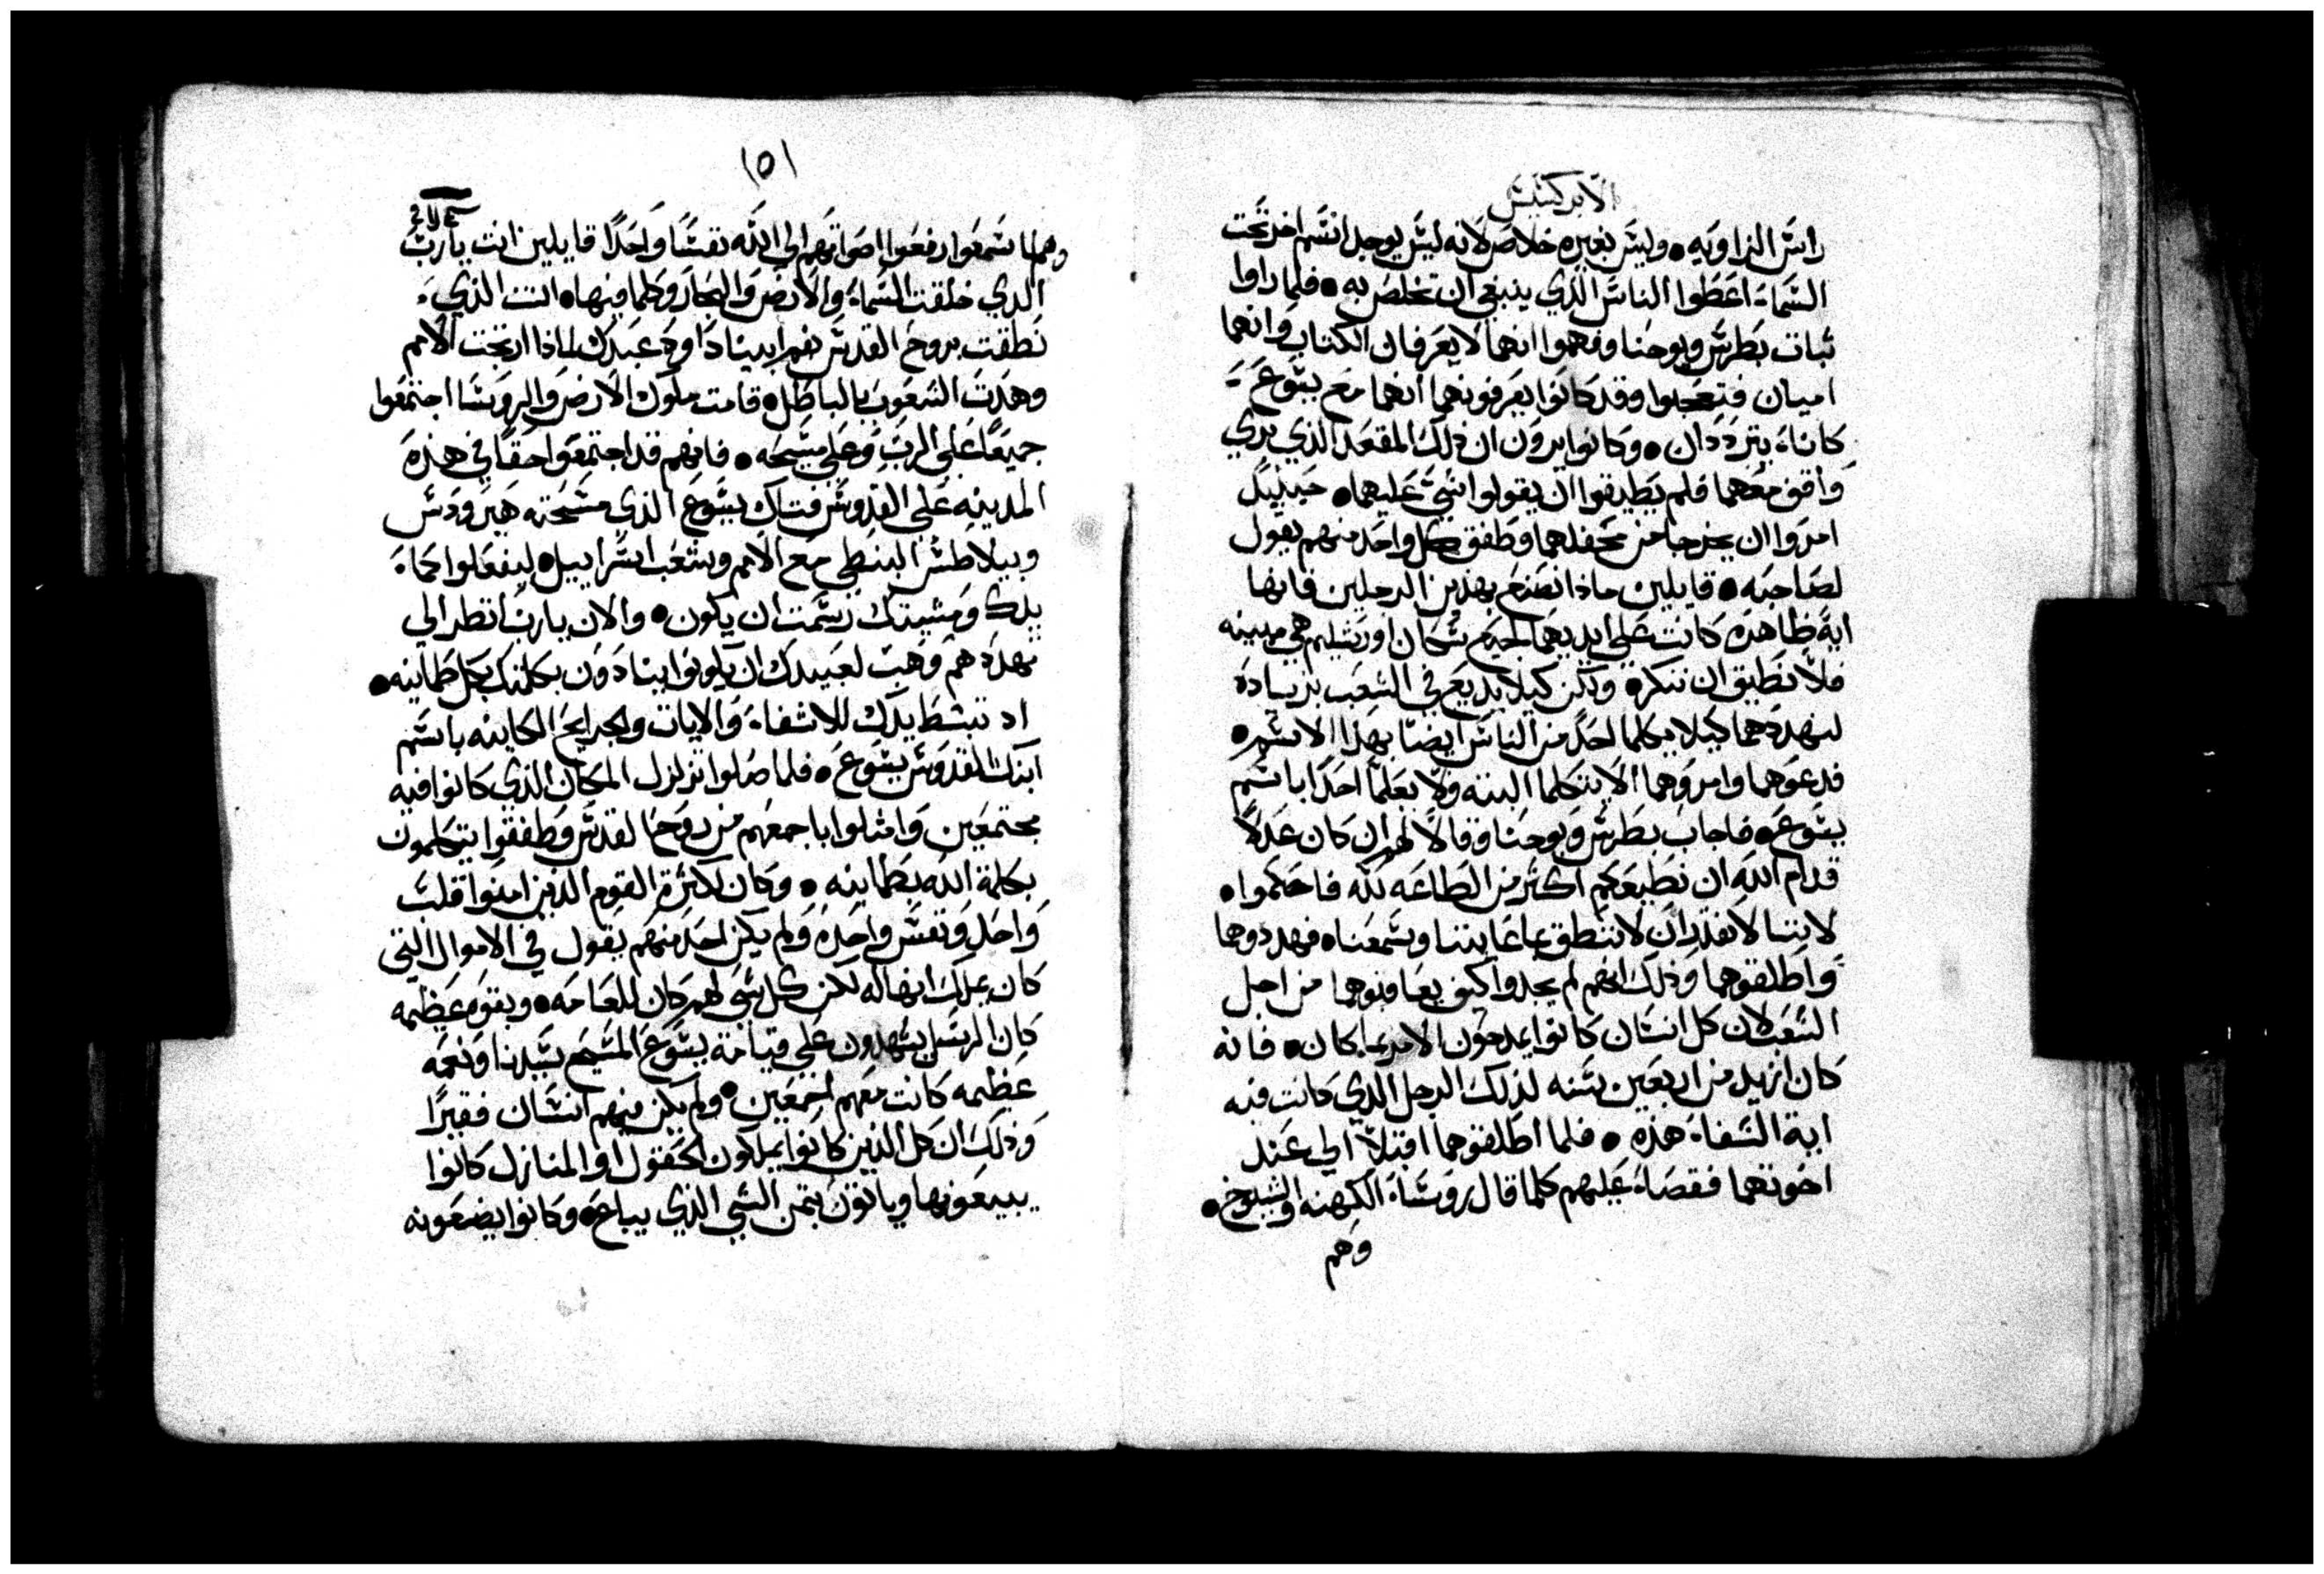 الابركسيس
راس الزاويه • وليس بغيره خلاص لانه ليس يوجد اسم اخر تحت
السماء اعطوا الناس الذي ينبغي ان تخلص به • فلما راوا
ثبات بطرس ويوحنا وفهموا انهما لا يعرفان الكتاب وانهما
اميان فتعجبوا وقد كانوا يعرفونهما انهما مع يسوع
كانا يترددان • وكانوا يرون ان ذلك المقعد الذي بري
واقف معهما فلم يطيقوا ان يقولوا شي عليهما • حينيذ
امروا ان يخرجا من محفلهما وطفق كل واحد منهم يقول
لصاحبه • قايلين ماذا نصنع بهذين الرجلين فانها
ايه ظاهره كانت على ايديهما لجميع سكان اورشليم هي مبينه
فلا نطيق ان ننكره ولكن كيلا يذيع في الشعب بزياده
لنهددهما كيلا يكلما احد من الناس ايضا بهذا الاسم •
فدعوهما وامروهما الا يتكلما البته ولا يعلما احدا باسم
يسوع • فاجاب بطرس ويوحنا وقالا لهم ان كان عدلا
قدام الله ان نطيعكم اكثر من الطاعه لله فاحكموا •
لاننا لا نقدر ان لا ننطق بما عاينا وسمعناه فهددوهما
واطلقوهما وذلك انهم لم يجدوا كيف يعاقبوهما من اجل
الشعب لان كل انسان كانوا يمدحون الامر بما كان • فانه
كان ازيد من اربعين سنه لذلك الرجل الذي كانت فيه
اية الشفاء هذه • فلما اطلقوهما اقبلا الى عند
اخوتهما فقصا عليهم كلما قال روساء الكهنه والشيوخ •
وهم
١٥١
وهم لما سمعوا رفعوا اصواتهم الى الله نفسا واحدا قايلين انت يارب
الذي خلقت السماء والارض والبحار وكلما فيها • انت الذي
نطقت بروح القدس بفم ابينا داود عبدك لماذا ارتجت الامم
وهدت الشعوب بالباطل • قامت ملوك الارض والروسا اجتمعوا
جميعا على الرب وعلى مسيحه • فانهم قد اجتمعوا حقا في هذه
المدينه على القدوس فتاك يسوع الذي مسحته هيرودس
وبيلاطس البنطي مع الامم وشعب اسراييل • ليفعلوا كما
يدك ومشيتك رسمت ان يكون • والان يارب انظر الى
تهددهم وهب لعبيدك ان يكونوا ينادون بكلمتك بكل طمانينه •
اد تبسط يدك للاشفاء والايات والجرايح الكاينه باسم
ابنك القدوس يسوع • فلما صلوا تزلزل المكان الذي كانوا فيه
مجتمعين وامتلوا باجمعهم من روح القدس وطفقوا يتكلمون
بكلمة الله بطمانينه • وكان لكثرة القوم الذين امنوا قلب
واحد ونفس واحده ولم يكن احد منهم يقول في الاموال التي
كان يملك انها له لكن كل شي لهم كان للعامه • وبقوه عظيمه
كان الرسل يشهدون على قيامة يسوع المسيح سيدنا ونعمه
عظيمه كانت معهم اجمعين • ولم يكن فيهم انسان فقيرا
وذلك ان كل الذين كانوا يملكون الحقول او المنازل كانوا
يبيعونها وياتون بثمن الشي الذي يباع • وكانوا يضعونه